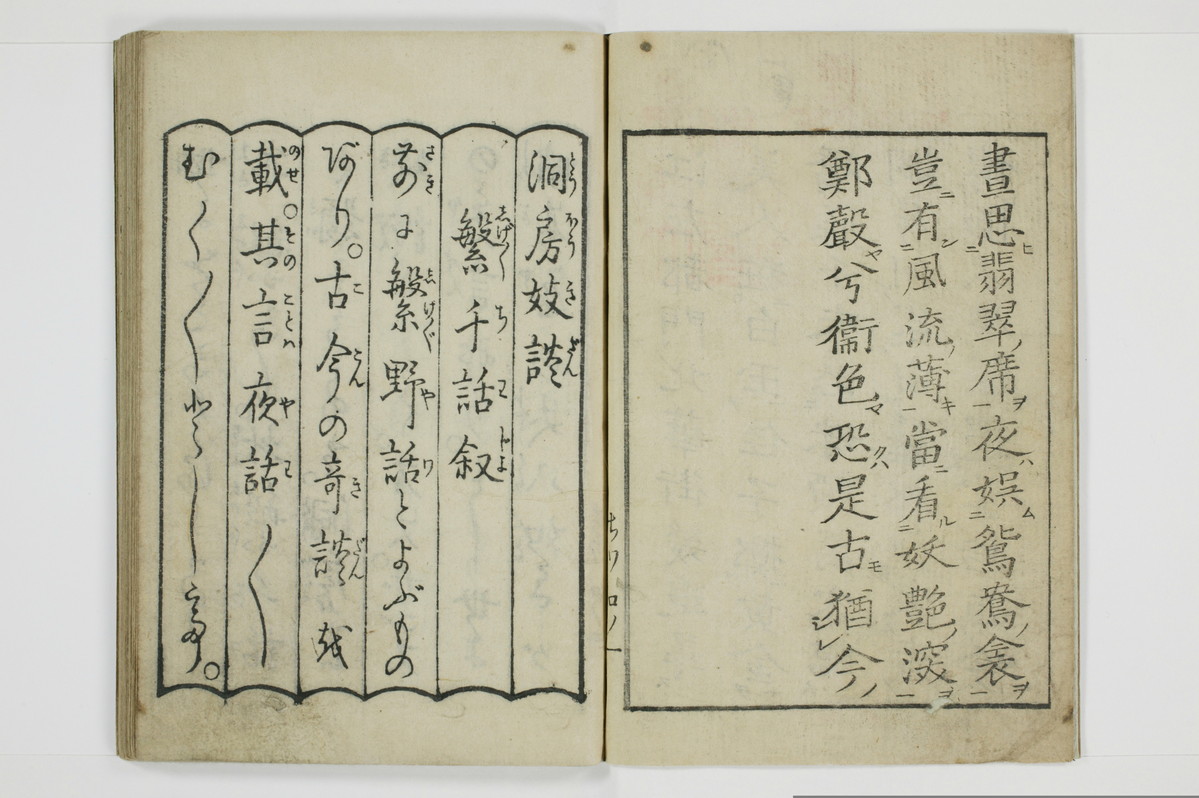 晝思翡翠席夜娯鴛鴦衾
豈有風流薄當看妖艶深
鄭聲兮衞色恐是古猶今
ちワ 口ノ一
洞房妓談
繁千話叙
前に繁野話とよぶもの
あり。古今の奇談を
載。其言夜話〱